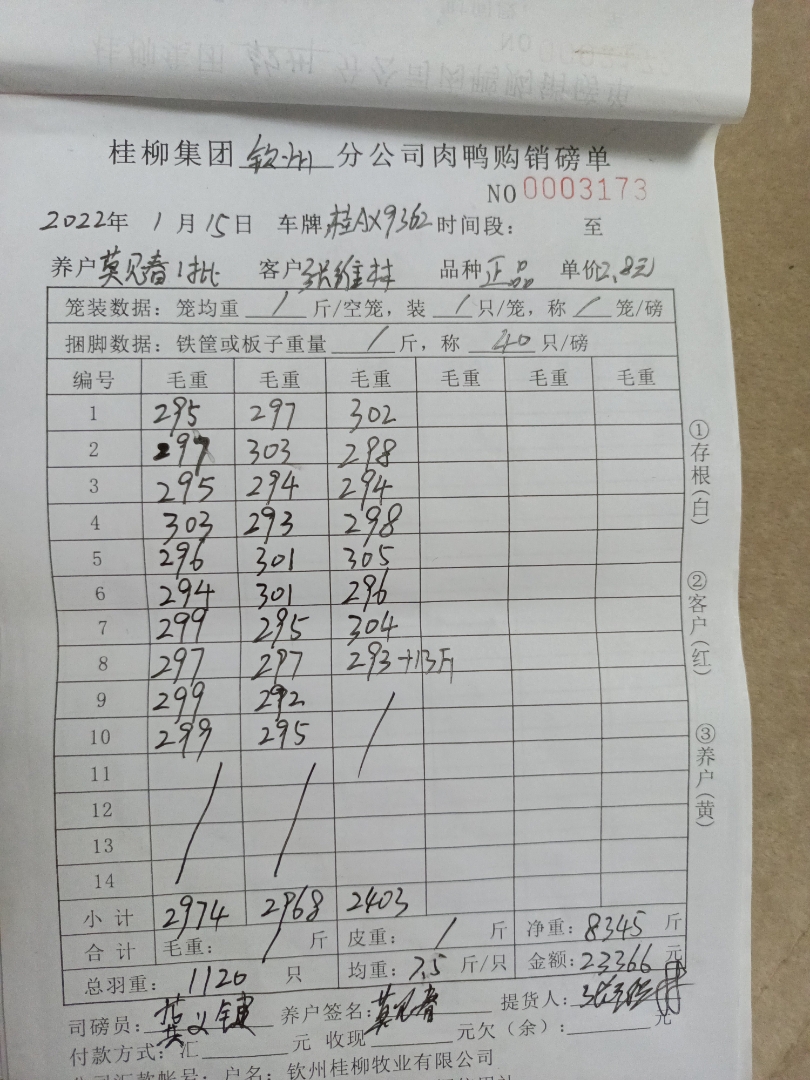 桂柳集团 钦州 分公司肉鸭购销磅单
NO 0003173
2022年 1月 15日 车牌:桂AX9362 时间段: 至
养户 莫见春1批 客户 张维林 品种 正品 单价2.8元
笼装数据: 笼均重 / 斤/空笼, 装 / 只/笼, 称 / 笼/磅
捆脚数据: 铁筐或板子重量 / 斤, 称 40 只/磅
编号 毛重 毛重 毛重 毛重 毛重 毛重
1 295 297 302
2 297 303 298
3 295 294 294
4 303 293 298
5 296 301 305
6 294 301 296
7 299 295 304
8 297 297 293+13斤
9 299 292 /
10 299 295
11 / /
12
13
14
小计 2974 2968 2403
合计 毛重: / 斤 皮重: / 斤 净重: 8345 斤
总羽重: 1120 只 均重: 7.5 斤/只 金额: 23366 元
司磅员: 养户签名: 莫见春 提货人:
付款方式: 汇 元 收现 元欠(余): 元
公司汇款帐号: 户名: 钦州桂柳牧业有限公司
①存根(白)
②客户(红)
③养户(黄)